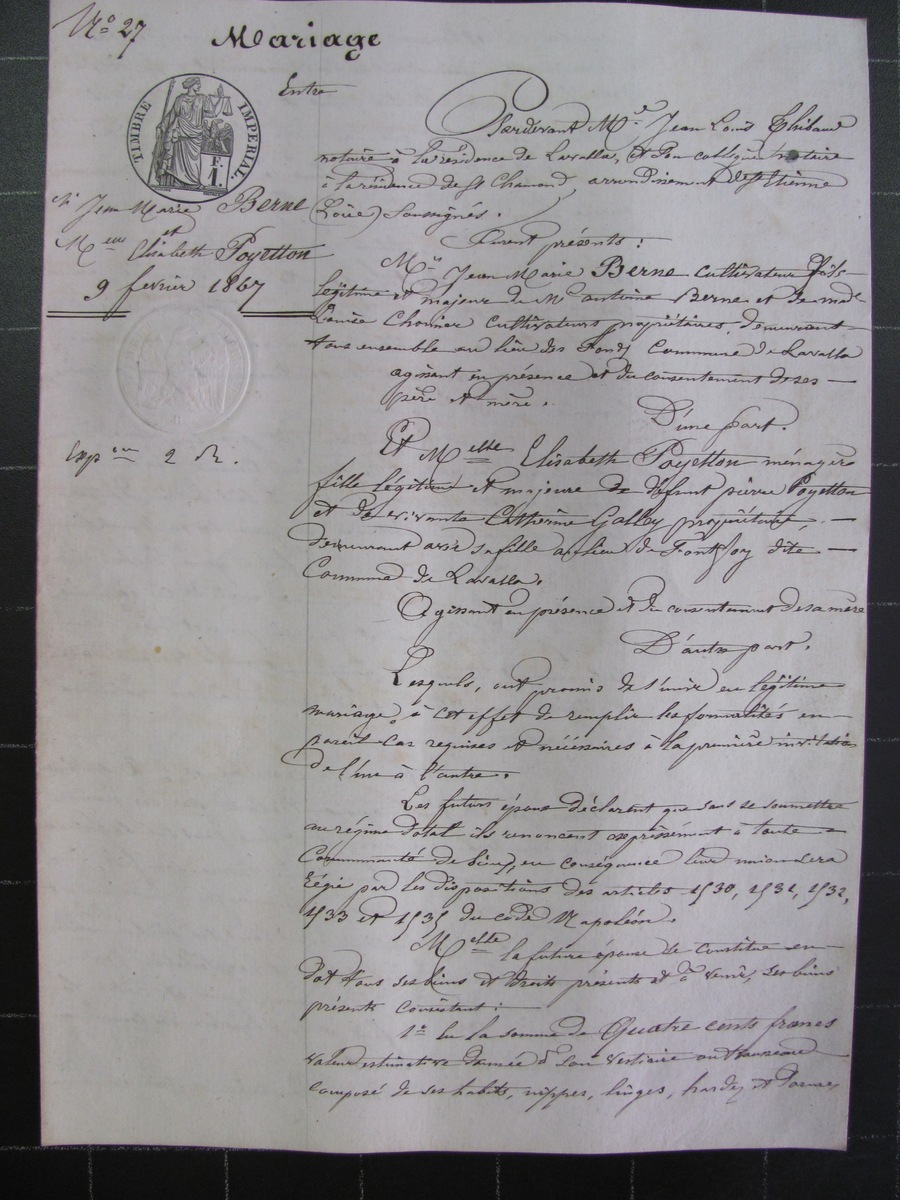 N° 27
Mariage
Entre
TIMBRE IMPERIAL
1 F.
Mr Jean Marie Berne
et
Melle Elisabeth Poyetton
9 fevrier 1867
Expon 2 R.
Pardevant Me Jean Louis Thibaud
notaire à la résidence de Lavalla, et son collègue notaire
à la résidence de St Chamond, arrondissement de St Etienne
(Loire) Soussignés.
Furent présents :
Mr Jean Marie Berne cultivateur fils
légitime et majeur de Mr antoine Berne et de made
Louise Chorier cultivateurs propriétaires, demeurant
tous ensemble au lieu des Fonds Commune de Lavalla
agissant en présence et du consentement de ses
père et mère.
D'une part.
Et Melle Elisabeth Poyetton ménagère
fille légitime et majeure de défunt pierre Poyetton
et de vivante Catherine Galley propriétaire,
demeurant avec sa fille au lieu de dite
Commune de Lavalla.
Agissant en présence et du consentement de sa mère
D'autre part.
Lesquels, ont promis de s'unir en légitime
mariage, à cet effet de remplir les formalités en
pareil cas requises et nécéssaires à la première invitation
de l'une à l'autre.
Les futurs époux déclarent que sans se soumettre
au régime dotal ils renoncent expréssément à toute
Communauté de biens, en conséquence leur union sera
régie par les dispositions des articles 1530, 1531, 1532,
1533 et 1535 du code Napoléon.
Melle la future épouse se constitue en
dot tous ses biens et droits présents et à venir, ses biens
présents consistant :
1° En la somme de Quatre cents francs
valeur estimative donnée à son vestiaire ou trousseau
composé de ses habits, nippes, linges, hardes et dorures